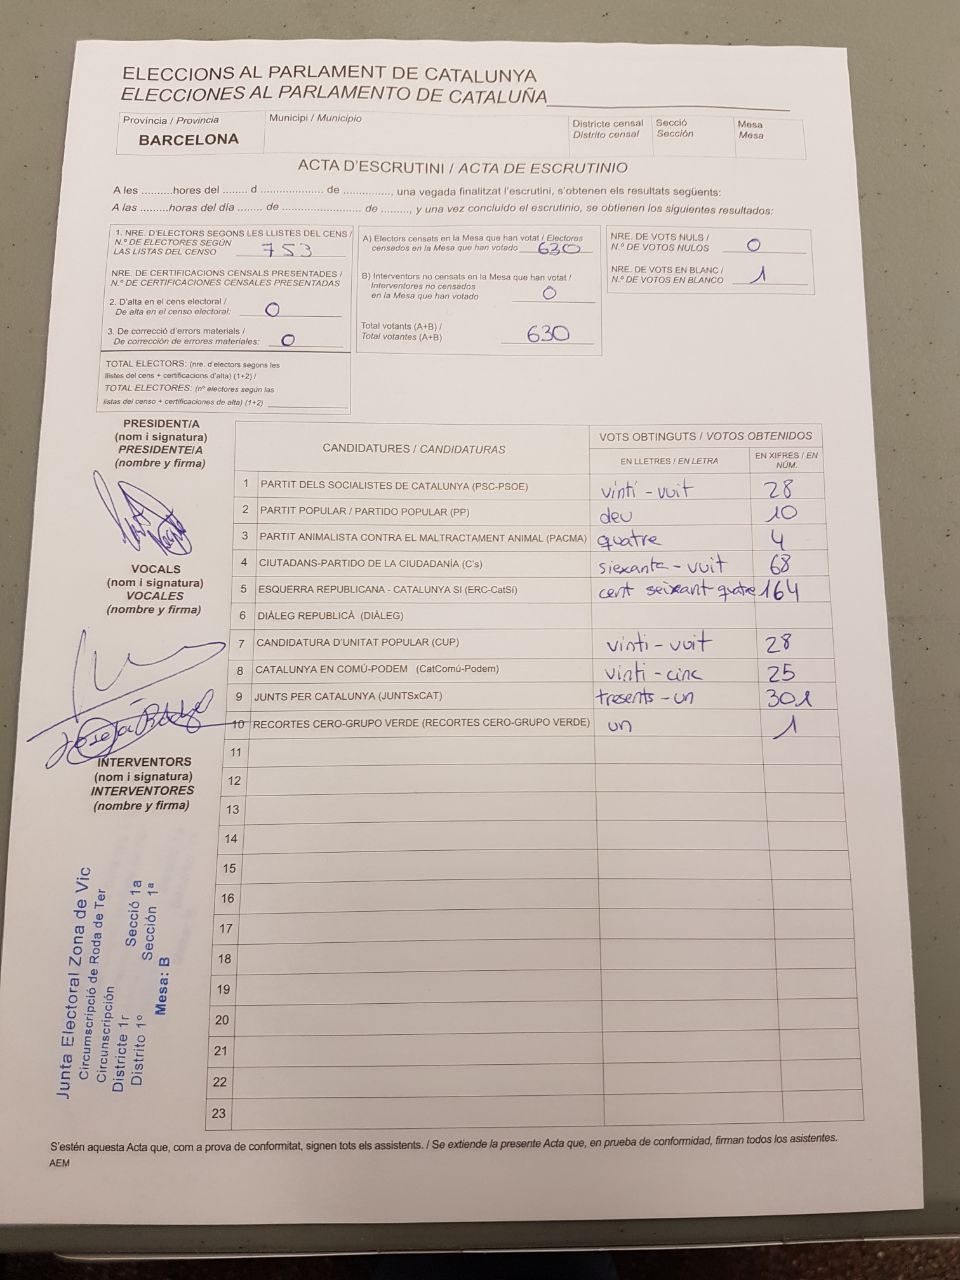 ELECCIONS AL PARLAMENT DE CATALUNYA
ELECCIONES AL PARLAMENTO DE CATALUÑA
Província / Provincia
BARCELONA
Municipi / Municipio
Districte censal
Distrito censal
Secció
Sección
Mesa
Mesa
ACTA D'ESCRUTINI / ACTA DE ESCRUTINIO
A les ..........hores del ........ d .................... de ..............., una vegada finalitzat l'escrutini, s'obtenen els resultats següents:
A las .........horas del día ........ de ......................... de ........, y una vez concluido el escrutinio, se obtienen los siguientes resultados:
1. NRE. D'ELECTORS SEGONS LES LLISTES DEL CENS /
N.º DE ELECTORES SEGÚN
LAS LISTAS DEL CENSO 753
NRE. DE CERTIFICACIONS CENSALS PRESENTADES /
N.º DE CERTIFICACIONES CENSALES PRESENTADAS
2. D'alta en el cens electoral /
De alta en el censo electoral: 0
3. De correcció d'errors materials /
De corrección de errores materiales: 0
TOTAL ELECTORS: (nre. d'electors segons les
llistes del cens + certificacions d'alta) (1+2) /
TOTAL ELECTORES: (nº electores según las
listas del censo + certificaciones de alta) (1+2)
A) Electors censats en la Mesa que han votat / Electores
censados en la Mesa que han votado 630
B) Interventors no censats en la Mesa que han votat /
Interventores no censados
en la Mesa que han votado 0
Total votants (A+B) /
Total votantes (A+B) 630
NRE. DE VOTS NULS /
N.º DE VOTOS NULOS 0
NRE. DE VOTS EN BLANC /
N.º DE VOTOS EN BLANCO 1
PRESIDENT/A
(nom i signatura)
PRESIDENTE/A
(nombre y firma)
VOCALS
(nom i signatura)
VOCALES
(nombre y firma)
INTERVENTORS
(nom i signatura)
INTERVENTORES
(nombre y firma)
CANDIDATURES / CANDIDATURAS
VOTS OBTINGUTS / VOTOS OBTENIDOS
EN LLETRES / EN LETRA
EN XIFRES / EN
NÚM.
1 PARTIT DELS SOCIALISTES DE CATALUNYA (PSC-PSOE) vinti-vuit 28
2 PARTIT POPULAR / PARTIDO POPULAR (PP) deu 10
3 PARTIT ANIMALISTA CONTRA EL MALTRACTAMENT ANIMAL (PACMA) quatre 4
4 CIUTADANS-PARTIDO DE LA CIUDADANÍA (C's) siexanta-vuit 68
5 ESQUERRA REPUBLICANA - CATALUNYA SI (ERC-CatSí) cent seixant quatre 164
6 DIÀLEG REPUBLICÀ (DIÀLEG)
7 CANDIDATURA D'UNITAT POPULAR (CUP) vinti-vuit 28
8 CATALUNYA EN COMÚ-PODEM (CatComú-Podem) vinti-cinc 25
9 JUNTS PER CATALUNYA (JUNTSxCAT) tresents-un 301
10 RECORTES CERO-GRUPO VERDE (RECORTES CERO-GRUPO VERDE) un 1
11
12
13
14
15
16
17
18
19
20
21
22
23
Junta Electoral Zona de Vic
Circumscripció de Roda de Ter
Circunscripción
Districte 1r Secció 1a
Distrito 1º Sección 1ª
Mesa: B
S'estén aquesta Acta que, com a prova de conformitat, signen tots els assistents. / Se extiende la presente Acta que, en prueba de conformidad, firman todos los asistentes.
AEM